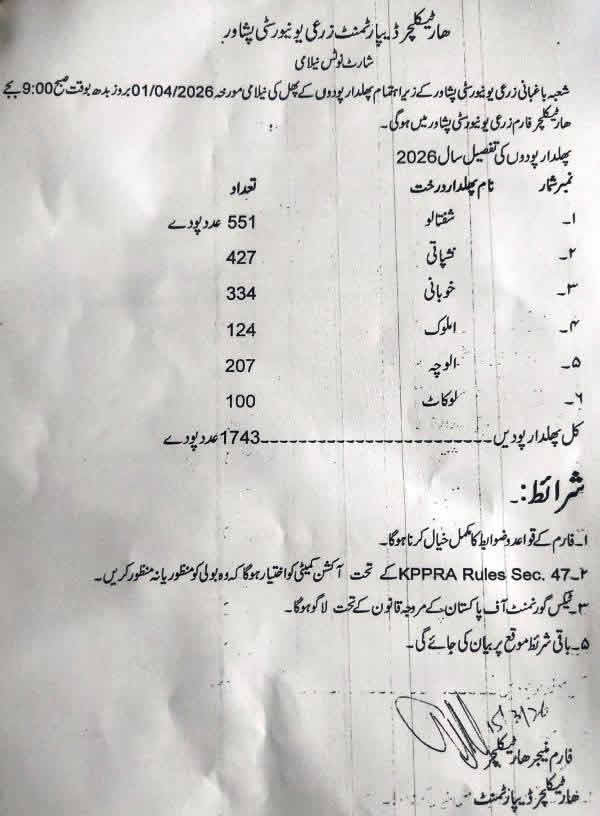 ھارٹیکلچر ڈیپارٹمنٹ زرعی یونیورسٹی پشاور
شارٹ نوٹس نیلامی
شعبہ باغبانی زرعی یونیورسٹی پشاور کے زیر اہتمام پھلدار پودوں کے پھل کی نیلامی مورخہ 01/04/2026 بروز بدھ بوقت صبح 9:00 بجے
ھارٹیکلچر فارم زرعی یونیورسٹی پشاور میں ہوگی۔
پھلدار پودوں کی تفصیل سال 2026
نمبر شمار نام پھلدار درخت تعداد
۱۔ شفتالو 551 عدد پودے
۲۔ نشپاتی 427
۳۔ خوبانی 334
۴۔ املوک 124
۵۔ الوچہ 207
۶۔ لوکاٹ 100
کل پھلدار پودیں ------------------------1743 عدد پودے
شرائط:۔
۱۔ فارم کے قواعد و ضوابط کا مکمل خیال کرنا ہوگا۔
۲۔ KPPRA Rules Sec. 47 کے تحت آکشن کمیٹی کو اختیار ہوگا کہ وہ بولی کو منظور یا نہ منظور کریں۔
۳۔ ٹیکس گورنمنٹ آف پاکستان کے مروجہ قانون کے تحت لاگو ہوگا۔
۵۔ باقی شرائط موقع پر بیان کی جائے گی۔
15/3/26
فارم منیجر ھارٹیکلچر
ھارٹیکلچر ڈیپارٹمنٹ